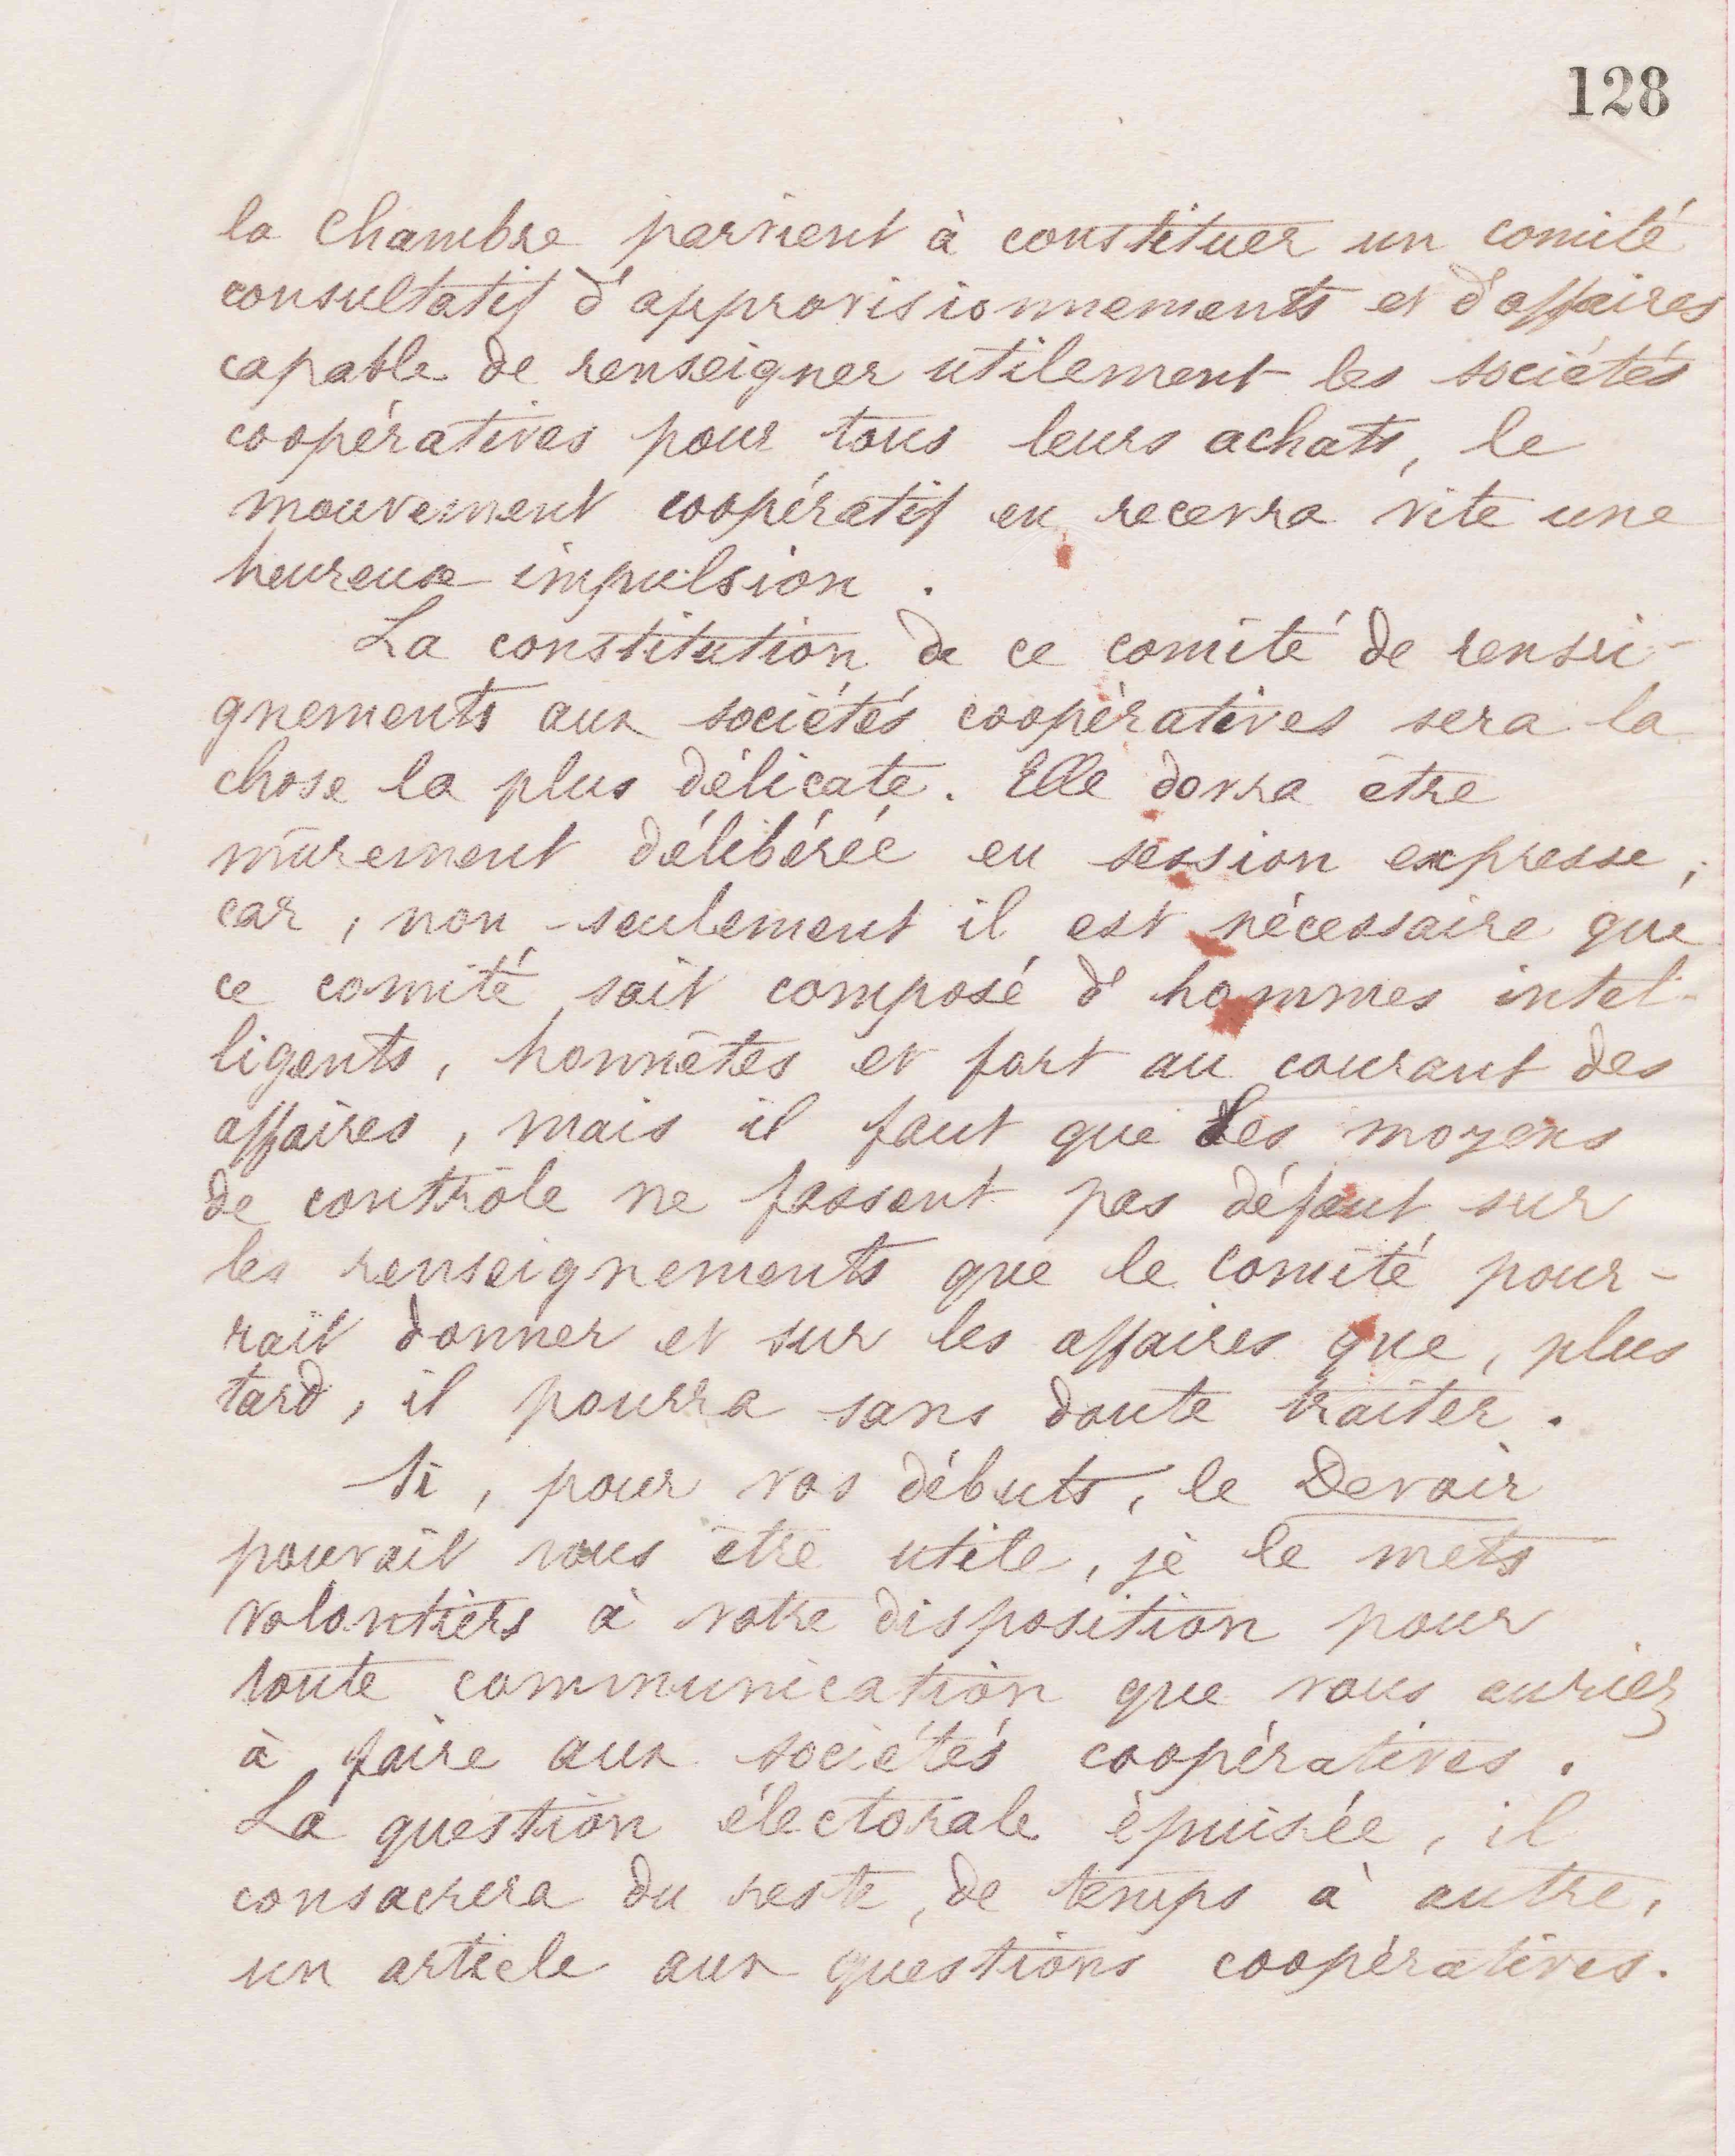 128
la Chambre parvient à constituer un comité
consultatif d'approvisionnements et d'affaires
capable de renseigner utilement les sociétés
coopératives pour tous leurs achats, le
mouvement coopératif en recevra vite une
heureuse impulsion.
La constitution de ce comité de rensei-
gnements aux sociétés coopératives sera la
chose la plus délicate. Elle devra être
mûrement délibérée en session expresse;
car, non-seulement il est nécessaire que
ce comité soit composé d'hommes intel-
ligents, honnêtes et fort au courant des
affaires, mais il faut que les moyens
de contrôle ne fassent pas défaut sur
les renseignements que le comité pour-
rait donner et sur les affaires que, plus
tard, il pourra sans doute traiter.
Si, pour vos débuts, le Devoir
pouvait vous être utile, je le mets
volontiers à votre disposition pour
toute communication que vous auriez
à faire aux sociétés coopératives.
La question électorale épuisée, il
consacrera du reste, de temps à autre,
un article aux questions coopératives.